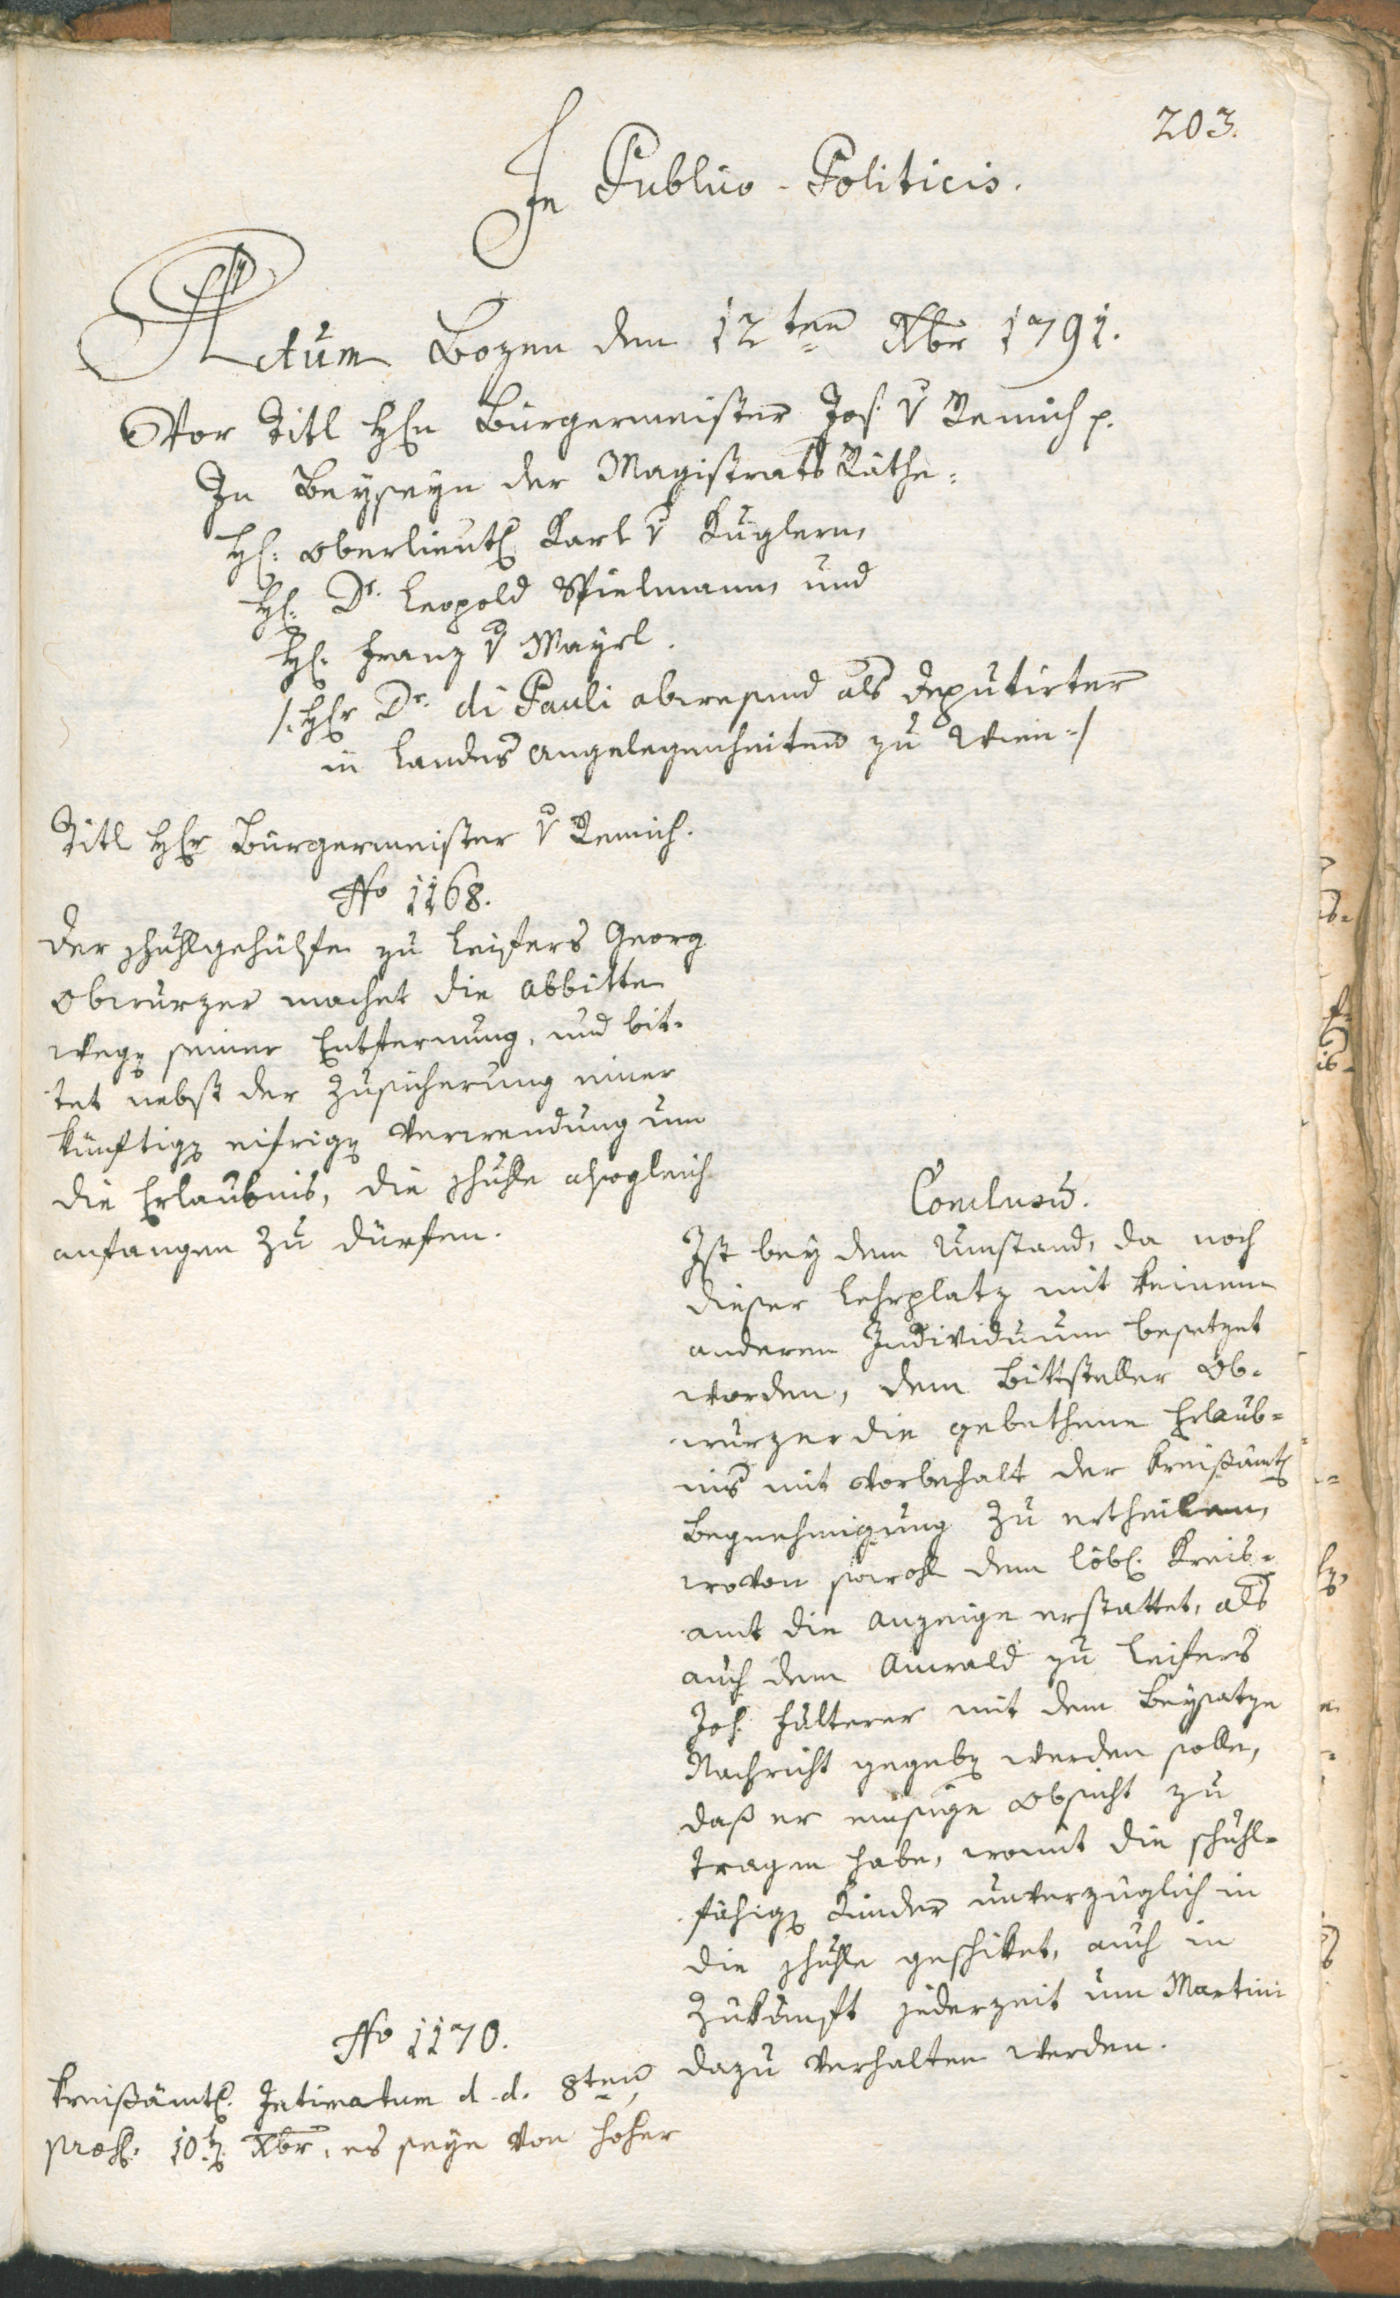 203.
In Publico-Politicis.
Actum Bozen den 12ten Xbr 1791.
Vor Titl Hℓn Bürgermeister Jos. v Remich p.
In Beyseyn der Magistrats Räthe:
Hℓ: Oberlieutℓ Karl v Kuglern,
Hℓ: Dr. Leopold Spielmann, und
Hℓ: Franz v Mayrl.
/: Hℓr Dr. di Pauli abwesend als Deputirter
in Landes Angelegenheiten zu Wien :/
Titl Hℓr Bürgermeister v Remich.
No 1168.
Der Schuhlgehülfe zu Leifers Georg
Obwurzer machet die Abbitte
wegen seiner Entfernung, und bit-
tet nebst der Zusicherung einer
künftigen eifrigen Verwendung um
die Erlaubnis, die Schuhle alsogleich
anfangen zu dürfen.
Conclusum.
Ist bey dem Umstand, da noch
dieser Lehrplatz mit keinem
anderen Individuum besetzet
worden, dem Bittsteller Ob-
wurzer die gebethene Erlaub-
nis mit Vorbehalt der Kreißämtℓ
Begnehmigung zu ertheilen,
wovon sowohl dem löbℓ. Kreis-
amt die Anzeige erstattet, als
auch dem Anwald zu Leifers
Jos. Fulterer mit dem Beysatze
Nachricht gegeben werden solle,
daß er emsige Obsicht zu
tragen habe, womit die schuhl-
fähigen Kinder unverzüglich in
die Schuhle geschiket, auch in
Zukunft jederzeit um Martini
dazu verhalten werden.
No 1170.
Kreißämtℓ. Intimatum d. d. 8ten,
præs: 10t Xbr, es seye von hoher